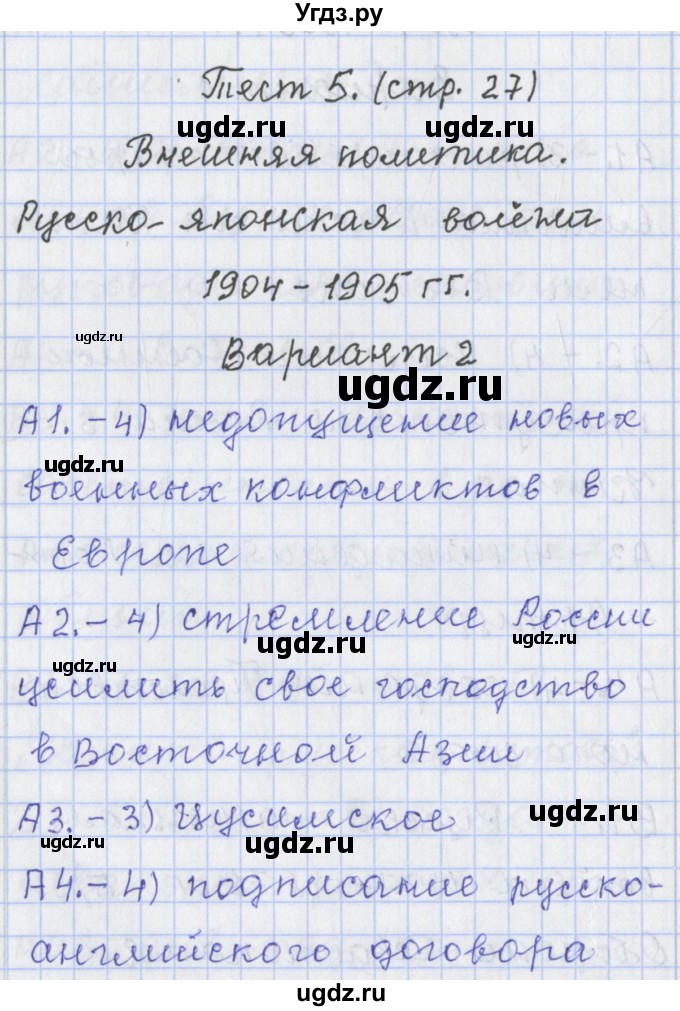 Угдз.ру
Тест 5. (стр. 27)
ugdz.ru
Внешняя политика.
Русско-японская война
1904-1905 гг.
ugdz.ru
Вариант 2
ugdz.ru
А1.-4) недопущение новых
ugdz.ru
военных конфликтов в
Европе
А2.-4) стремление России
ugdz.ru
ugdz.ru
усилить свое господство
в Восточной Азии
А3.-3) Цусимское
ugdz.ru
ugdz.ru
ugdz.ru
А4.-4) подписание русско-
английского договора
ugdz.ru